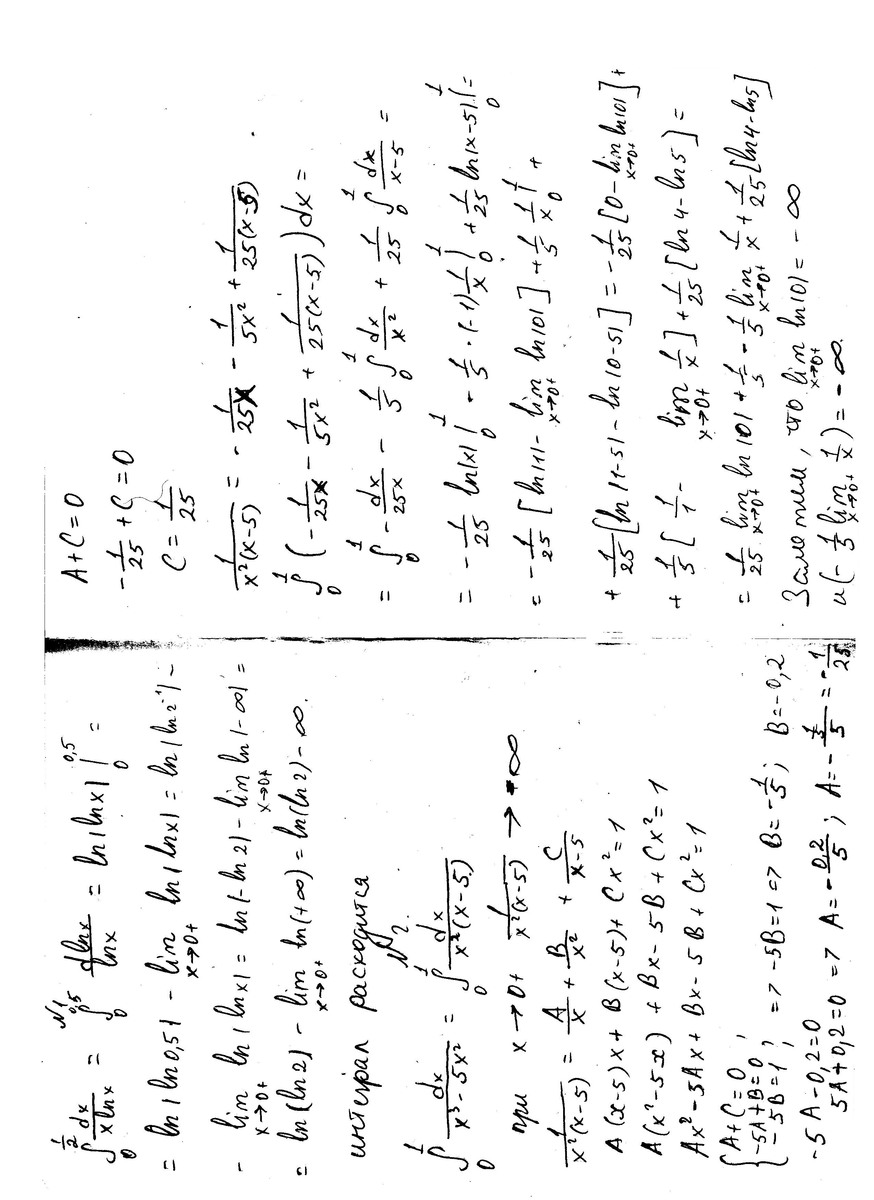 N1
∫₀^{1/2} dx/(x lnx) = ∫₀^{0,5} dlnx/lnx = ln|lnx| |₀^{0,5} =
= ln|ln0,5| - lim_{x→0+} ln|lnx| = ln|ln2⁻¹| -
- lim_{x→0+} ln|lnx| = ln|-ln2| - lim_{x→0+} ln|-∞| =
= ln(ln2) - lim_{x→0+} ln(+∞) = ln(ln2) - ∞.
интеграл расходится
N2.
∫₀¹ dx/(x³-5x²) = ∫₀¹ dx/(x²(x-5))
при x→0+ 1/(x²(x-5)) → -∞
1/(x²(x-5)) = A/x + B/x² + C/(x-5)
A(x-5)x + B(x-5) + Cx² = 1
A(x²-5x) + Bx - 5B + Cx² = 1
Ax² - 5Ax + Bx - 5B + Cx² = 1
{A+C=0
-5A+B=0;
-5B=1; => -5B=1 => B=-1/5; B=-0,2
-5A-0,2=0
5A+0,2=0 => A=-0,2/5; A=-(1/5)/5=-1/25
A+C=0
-1/25+C=0
C=1/25
1/(x²(x-5)) = -1/(25x) - 1/(5x²) + 1/(25(x-5))
∫₀¹ (-1/(25x) - 1/(5x²) + 1/(25(x-5)))dx =
= ∫₀¹ -dx/(25x) - 1/5 ∫₀¹ dx/x² + 1/25 ∫₀¹ dx/(x-5) =
= -1/25 ln|x| |₀¹ - 1/5·(-1)1/x |₀¹ + 1/25 ln|x-5| |₀¹ =
= -1/25 [ln|1| - lim_{x→0+} ln|0|] + 1/5 1/x |₀¹ +
+ 1/25 [ln|1-5| - ln|0-5|] = -1/25 [0 - lim_{x→0+} ln|0|] +
+ 1/5 [1/1 - lim_{x→0+} 1/x] + 1/25 [ln4-ln5] =
= 1/25 lim_{x→0+} ln|0| + 1/5 - 1/5 lim_{x→0+} 1/x + 1/25 [ln4-ln5]
Заметим, что lim_{x→0+} ln|0| = -∞
и (-1/5 lim_{x→0+} 1/x) = -∞.